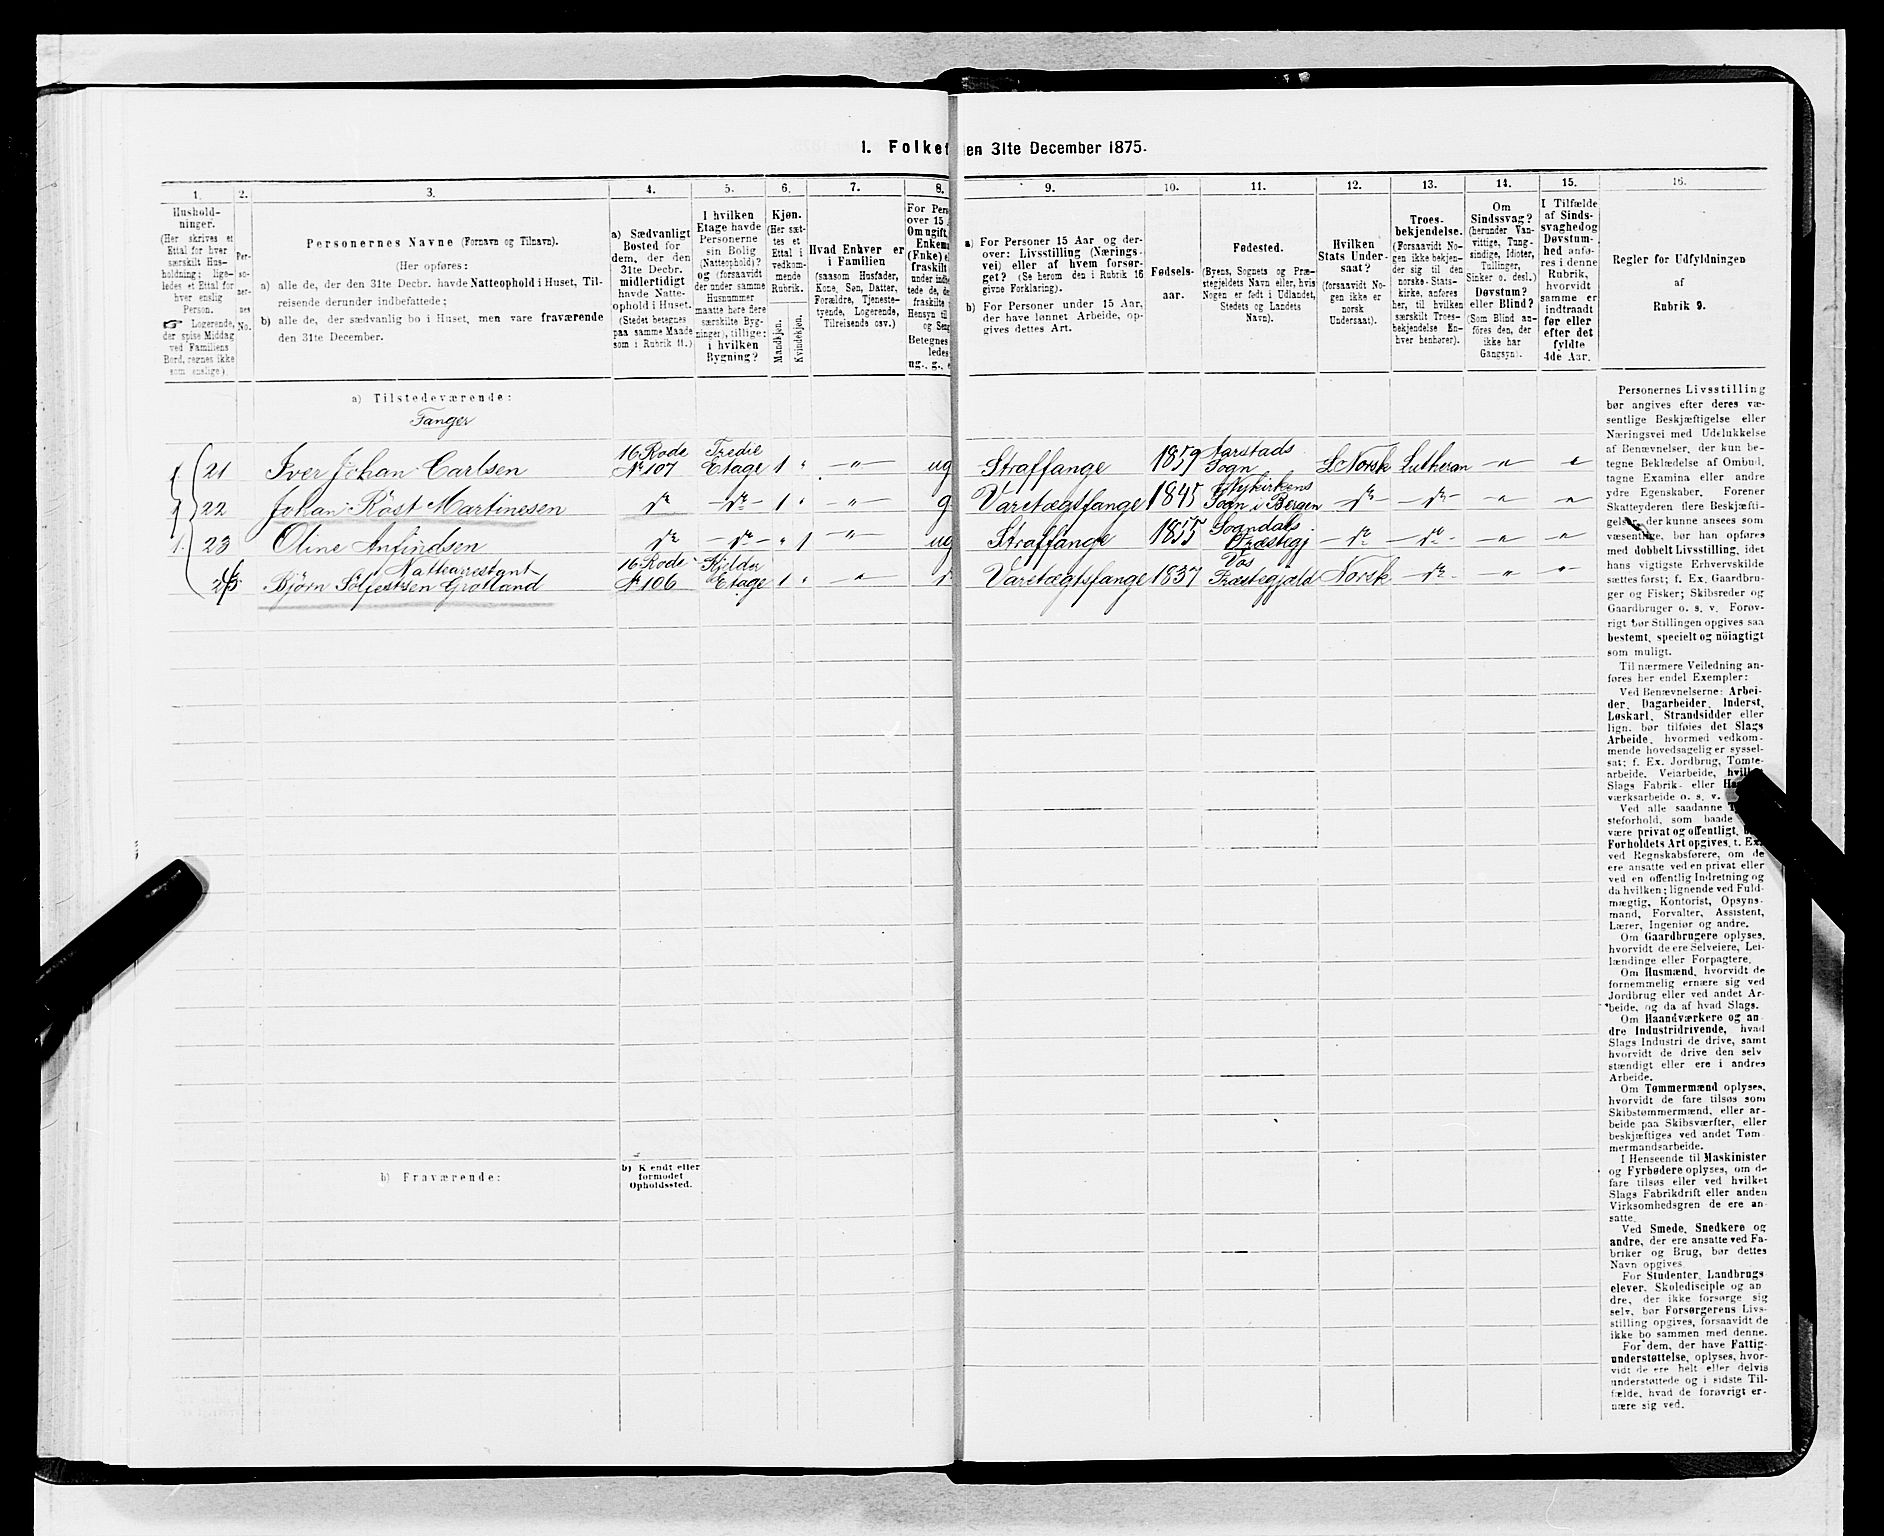 1. Folket
den 31te December 1875.
1.
2.
3.
4.
5.
6.
7.
8.
9.
10.
11.
12.
13.
14.
15.
16.
Hushold-
ninger.
(Her skrives et
Ettal for hver
særskilt Hus-
holdning; lige-
ledes et Ettal for
hver enslig
Person.
☞ Logerende,
der spise Middag
ved Familiens
Bord, regnes ikke
som enslige).
Per-
so-
ner-
nes
No.
Personernes Navne (Fornavn og Tilnavn).
(Her opføres:
a) alle de, der den 31te Decbr. havde Natteophold i Huset, Til-
reisende derunder indbefattede;
b) alle de, der sædvanlig bo i Huset, men vare fraværende
den 31te December.
a) Sædvanligt
Bosted for
dem, der den
31te Decbr.
midlertidigt
havde Natte-
ophold i Huset.
(Stedet betegnes
paa samme Maade
som i Rubrik 11.)
I hvilken
Etage havde
Personerne
sin Bolig
(Natteophold)?
og (forsaavidt
der under samme
Husnummer
maatte høre flere
særskilte Byg-
ninger), tillige:
i hvilken
Bygning?
Kjøn.
(Her sæt-
tes et
Ettal i
vedkom-
mende
Rubrik.
Mandkjøn.
Kvindekjøn.
Hvad Enhver er
i Familien
(saasom Husfader,
Kone, Søn, Datter,
Forældre, Tjeneste-
tyende, Logerende,
Tilreisende osv.)
For Pers
over 15 A
Om ugift,
Enkema
(Enke) e
fraskilt
under indbe
tede de, de
fraskilte
Hensyn til
og Seng
Betegnes
ledes
ug., g., e
a) For Personer 15 Aar og der-
over: Livsstilling (Nærings-
vei) eller af hvem forsør-
get? (Se herom den i Rubrik 16
givne Forklaring).
b) For Personer under 15 Aar,
der have lønnet Arbeide, op-
gives dettes Art.
Fødsels-
aar.
Fødested.
(Byens, Sognets og Præ-
stegjeldets Navn eller, hvis
Nogen er født i Udlandet,
Stedets og Landets
Navn).
Hvilken
Stats Under-
saat?
(forsaavidt No-
gen ikke er
norsk
Undersaat).
Troes-
bekjendelse.
(Forsaavidt No-
gen ikke bekjen-
der sig til den
norske-Stats-
kirke, anføres
her, til hvilken
særskilt Troes-
bekjendelse En-
hver henhører).
Om
Sindssvag?
(herunder Van-
vittige, Tung-
sindige, Idioter,
Tullinger,
Sinker o. desl.)
Døvstum?
eller Blind?
(Som Blind an-
føres den, der
ikke har
Gangsyn).
I Tilfælde
af Sinds-
svaghed og
Døvstum-
hed anfø-
res i denne
Rubrik,
hvorvidt
samme er
indtraadt
før eller
efter det
fyldte
4de Aar.
Regler for Udfyldningen
af
Rubrik 9.
a) Tilstedeværende:
Fanger
1 21 Iver Johan Carlsen 16 Rode No 107 Tredie Etage 1 " — " — ug Straffange 1859 Aarstads Sogn Norsk Lutheran — " — "
1 22 Johan Röst Martinesen do — do — 1 " — " — g Varetægtsfange 1845 Nykirkens Sogn i Bergen — do — — do — — " — "
1. 23 Oline Anfindsen do — do — " 1 — " — ug Straffange 1855 Sogndals Præstegj — do — — do — — " — "
Nattearrestant
Bjørn Sölfestsen Grotland 16 Rode No 106 Kjelder Etage 1 " — " — Varetægtsfange 1837 Vos Præstegjæld Norsk — do — — " — "
b) Fraværende:
b) Kjendt eller
formodet
Opholdssted.
Personernes Livsstilling
bør angives efter deres væ-
sentlige Beskjæftigelse eller
Næringsvei med Udelukkelse
af Benævnelser, der kun be-
tegne Beklædelse af Ombud,
tagne Examina eller andre
ydre Egenskaber. Forener
Skatteyderen flere Beskjæfti-
gelser, der kunne ansees som
væsentlige, bør han opføres
med dobbelt Livsstilling, idet
hans vigtigste Erhvervskilde
sættes først; f. Ex. Gaardbru-
ger og Fisker; Skibsreder og
Gaardbruger o. s. v. Forøv-
rigt bør Stillingen opgives saa
bestemt, specielt og nöiagtigt
som muligt.
Til nærmere Veiledning an-
føres her endel Exempler:
Ved Benævnelserne: Arbei-
der, Dagarbeider, Inderst,
Løskarl, Strandsidder eller
lign. bør tilføies det Slags
Arbeide, hvormed vedkom-
mende hovedsagelig er syssel-
sat; f. Ex. Jordbrug, Tomte-
arbeide, Veiarbeide, hvilket
Slags Fabrik- eller Ha
værksarbeide o. s. v.
Ved alle saadanne
steforhold, som baade
være privat og offentligt,
Forholdets Art opgives, t. Ex.
ved Regnskabsførere, om de
ere ansatte ved en privat eller
ved en offentlig Indretning og
da hvilken; lignende ved Fuld-
mægtig, Kontorist, Opsyns-
mand, Forvalter, Assistent,
Lærer, Ingeniør og andre.
Om Gaardbrugere oplyses,
hvorvidt de ere Selveiere, Lei-
lændinge eller Forpagtere.
Om Husmænd, hvorvidt de
fornemmelig ernære sig ved
Jordbrug eller ved andet Ar-
beide, og da af hvad Slags.
Om Haandværkere og an
dre Industridrivende, hvad
Slags Industri de drive, samt
hvorvidt de drive den selv
stændigt eller ere i andres
Arbeide.
Om Tømmermænd oplyses,
hvorvidt de fare tilsøs som
Skibstømmermænd, eller ar-
beide paa Skibsværfter, eller
beskjæftiges ved andet Tøm
mermandsarbeide.
I Henseende til Maskinister
og Fyrbødere oplyses, om de
fare tilsøs eller ved hvilket
Slags Fabrikdrift eller anden
Virksomhedsgren de ere an
satte.
Ved Smede, Snedkere og
andre, der ere ansatte ved Fa-
briker og Brug, bør dettes
Navn opgives
For Studenter, Landbrugs
elever, Skoledisciple og an
dre, der ikke forsørge sig
selv, bør Forsørgerens Livs-
stilling opgives, forsaavidt de
ikke bo sammen med denne.
For dem, der have Fattig-
understøttelse, oplyses, hvor-
vidt de ere helt eller delvis
understøttede og i sidste Til-
fælde, hvad de forøvrigt er-
nære sig ved.